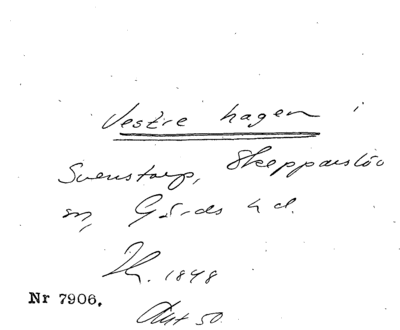 Vestre hagen i
Svenstorp, Skepparslöv
sn, Gärds hd.
1848
Nr 7906. Akt 50